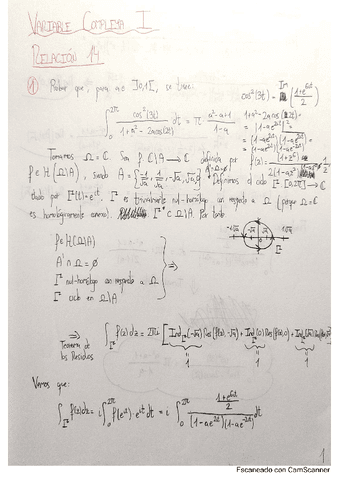 VARIABLE COMPLEJA I
RELACIÓN 14
① Probar que, para a∈]0,1[, se tiene:
∫₀^{2π} cos²(3t)/(1+a²-2acos(2t)) dt = π (a²-a+1)/(1-a)
cos²(3t) = (1+e^{6it})/2
1+a²-2acos(2t) =
= |1-ae^{2it}|² =
Tomamos Ω=ℂ. Sea f: ℂ\A → ℂ definida por f(z) =
f∈H(Ω\A), siendo A = Definimos el ciclo Γ: [0,2π] → ℂ
dado por Γ(t)=e^{it}. Γ es trivialmente nul-homólogo con respecto a Ω (porque Ω=ℂ
es homológicamente conexo). Γ* ⊂ Ω\A. Por tanto
f∈H(Ω\A)
A' ∩ Ω = ∅
Γ nul-homólogo con respecto a Ω
Γ ciclo en Ω\A
⇒
⇒
Teorema de
los Residuos
∫_Γ f(z)dz = 2πi [Ind_Γ(-√a) Res(f(z),-√a) + Ind_Γ(0) Res(f(z),0) +
1 1 1
Veamos que:
∫_Γ f(z)dz = i ∫₀^{2π} f(e^{it})·e^{it} dt = i ∫₀^{2π} ((1+e^{6it})/2)/((1-ae^{2it})(1-ae^{-2it})) dt
1
Escaneado con CamScanner